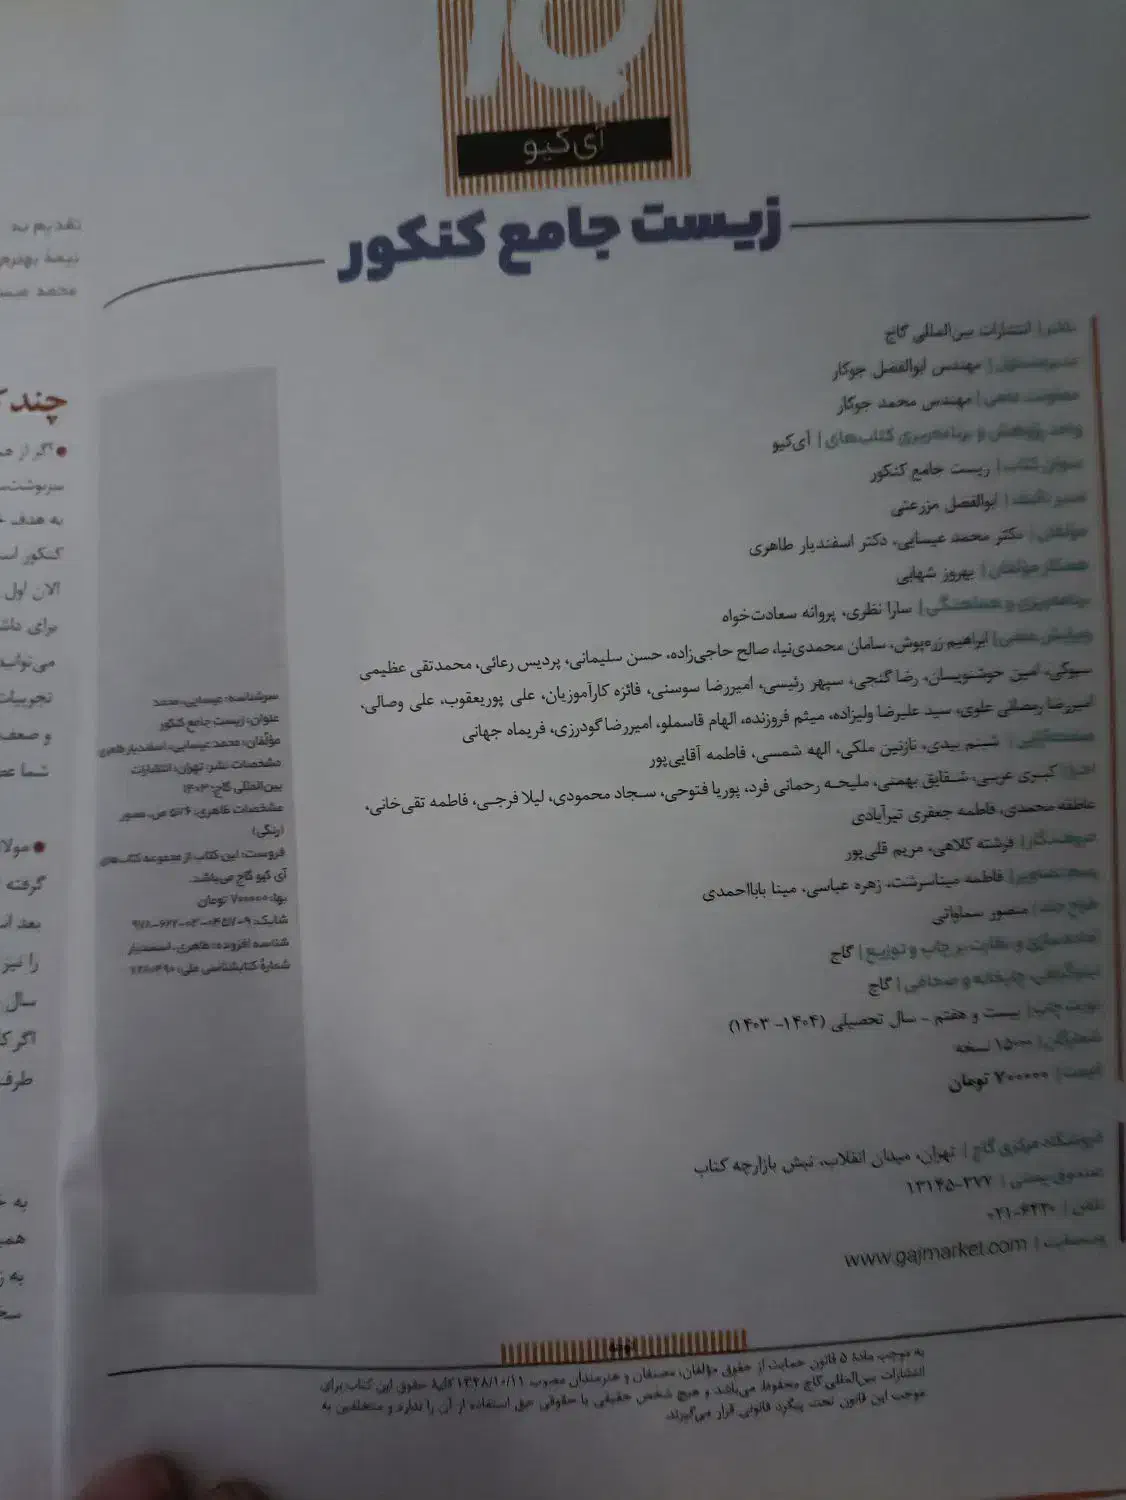 آی‌کیو
زیست جامع کنکور
ناشر | انتشارات بین‌المللی گاج
مدیرمسئول | مهندس ابوالفضل جوکار
معاونت علمی | مهندس محمد جوکار
واحد پژوهش و برنامه‌ریزی کتاب‌های | آی‌کیو
عنوان کتاب | زیست جامع کنکور
ابوالفضل مزرعتی
مؤلفان | دکتر محمد عیسایی، دکتر اسفندیار طاهری
همکار مؤلفان | بهروز شهابی
برنامه‌ریزی و هماهنگی | سارا نظری، پروانه سعادت‌خواه
ویرایش علمی | ابراهیم زره‌پوش، سامان محمدی‌نیا، صالح حاجی‌زاده، حسن سلیمانی، پردیس رعائی، محمدتقی عظیمی
امین خوشنویسان، رضا گنجی، سپهر رئیسی، امیررضا سوسنی، فائزه کارآموزیان، علی پوریعقوب، علی وصالی،
امیررضا رمضانی علوی، سید علیرضا ولیزاده، میثم فروزنده، الهام قاسملو، امیررضا گودرزی، فریماه جهانی
شبنم بیدی، نازنین ملکی، الهه شمسی، فاطمه آقایی‌پور
اجرا | کبری عربی، شقایق بهمنی، ملیحه رحمانی فرد، پوریا فتوحی، سجاد محمودی، لیلا فرجی، فاطمه تقی‌خانی،
عاطفه محمدی، فاطمه جعفری تیرآبادی
حروفنگار | فرشته کلاهی، مریم قلی‌پور
فاطمه میناسرشت، زهره عباسی، مینا بابااحمدی
طراح جلد | منصور سماواتی
آماده‌سازی و نظارت بر چاپ و توزیع | گاج
لیتوگرافی، چاپخانه و صحافی | گاج
نوبت چاپ | بیست و هفتم - سال تحصیلی (۱۴۰۴- ۱۴۰۳)
شمارگان | ۱۵۰۰۰ نسخه
قیمت | ۷۰۰۰۰۰ تومان
فروشگاه مرکزی گاج | تهران، میدان انقلاب، نبش بازارچه کتاب
صندوق پستی | ۳۷۷-۱۳۱۴۵
تلفن | ۶۴۲۰-۰۲۱
وب‌سایت | www.gajmarket.com
سرشناسه: عیسایی، محمد
عنوان: زیست جامع کنکور
مؤلفان: محمد عیسایی، اسفندیار طاهری
مشخصات نشر: تهران: انتشارات
بین‌المللی گاج: ۱۴۰۳
مشخصات ظاهری: ۵۷۶ ص، مصور
(رنگی)
فروست: این کتاب از مجموعه کتاب‌های
آی کیو گاج می‌باشد.
بها: ۷۰۰۰۰۰ تومان
شابک: ۹-۰۴۵۷-۰۳-۶۲۲-۹۷۸
شناسه افزوده: طاهری، اسفندیار
شمارهٔ کتابشناسی ملی:
به موجب مادهٔ ۵ قانون حمایت از حقوق مؤلفان، مصنفان و هنرمندان مصوب ۱۳۴۸/۱۰/۱۱ کلیهٔ حقوق این کتاب برای
انتشارات بین‌المللی گاج محفوظ می‌باشد و هیچ شخص حقیقی یا حقوقی حق استفاده از آن را ندارد و متخلفین به
موجب این قانون تحت پیگرد قانونی قرار می‌گیرند.
تقدیم به
چند
اگر از
به هدف
کنکور
الان اول
برای
تجربیات
و ضعف
شما
گرفته
بعد
را نیز
سال
طرف
به
به